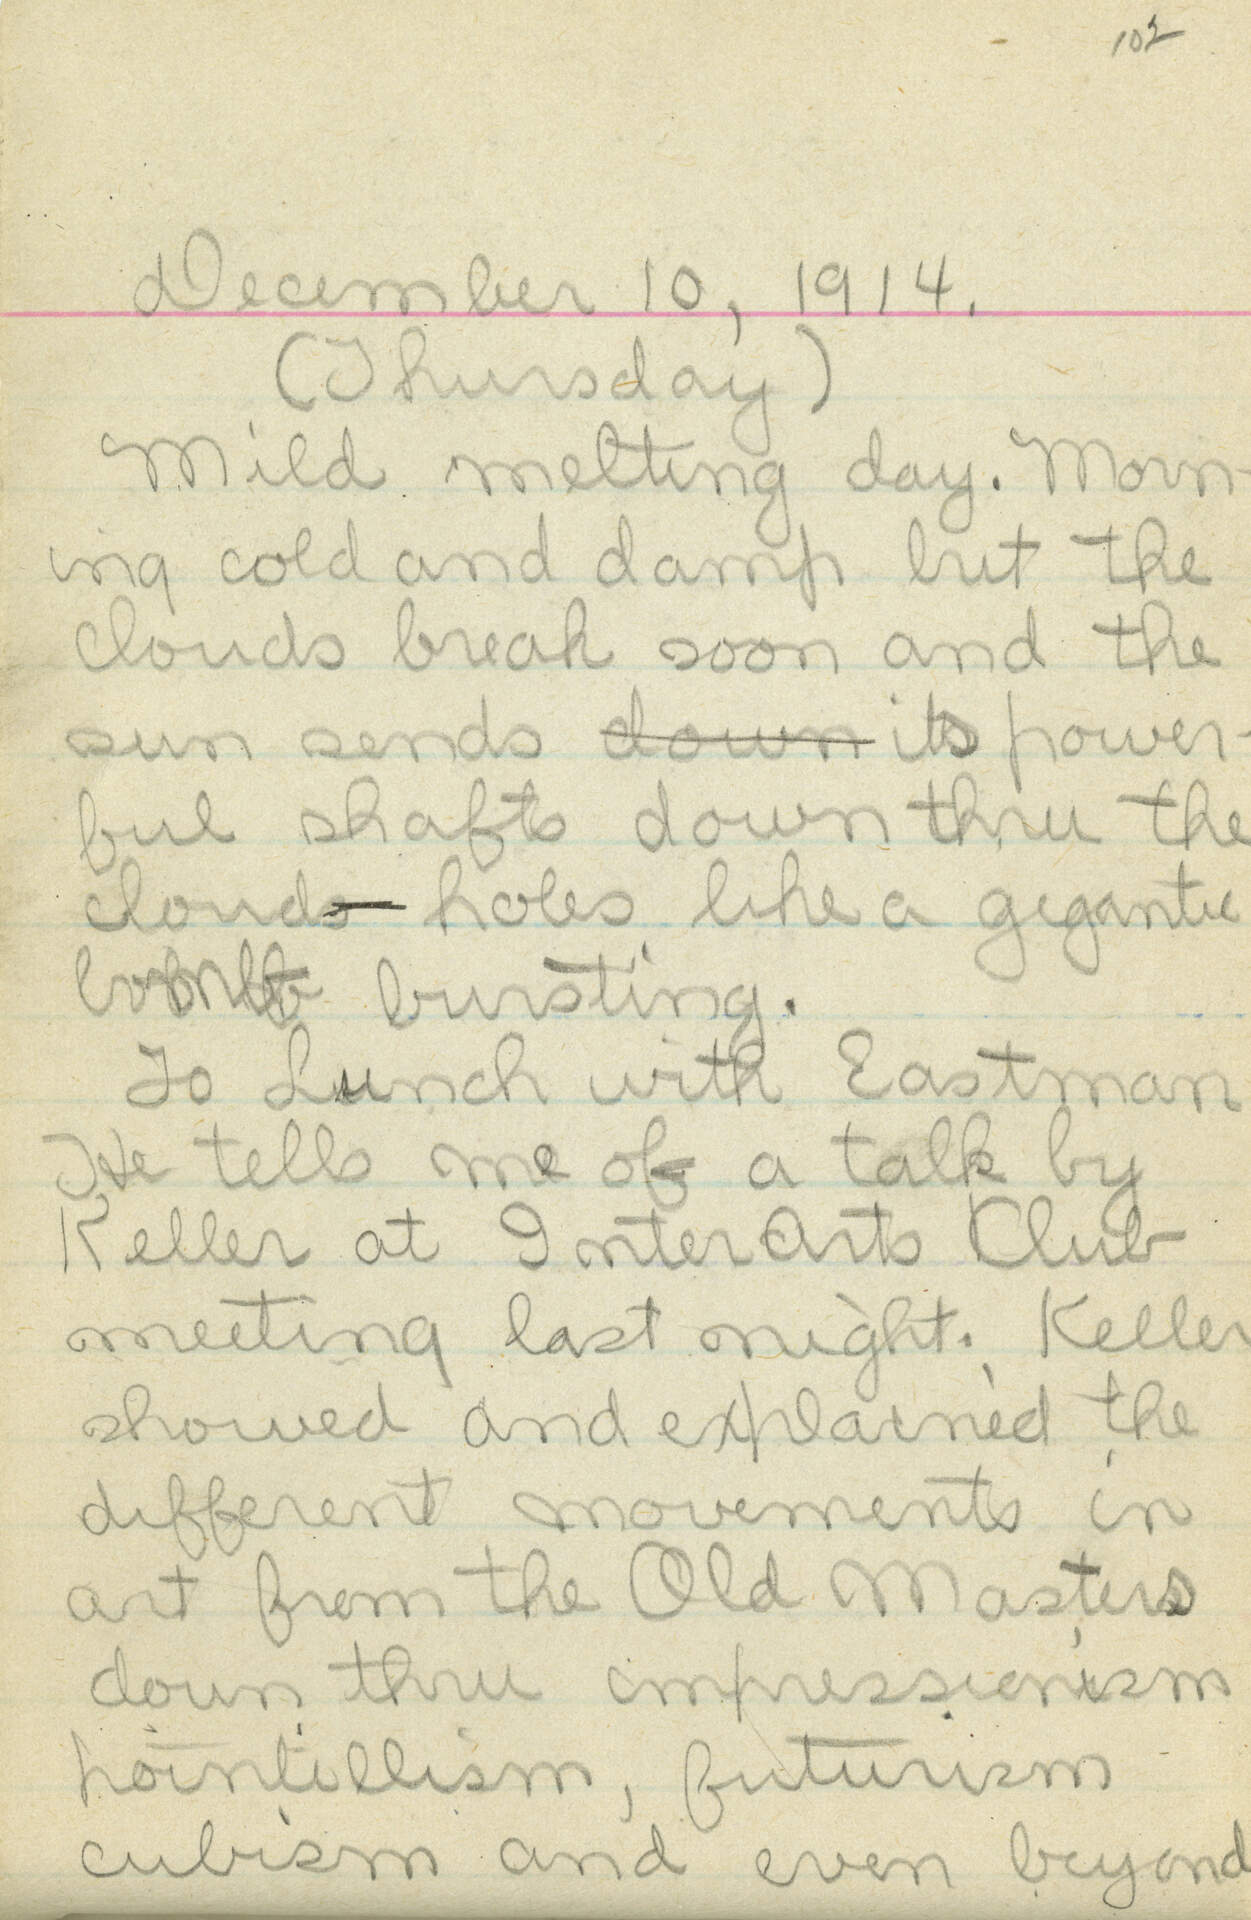 102
December 10, 1914.
(Thursday)
Mild melting day. Morn-
ing cold and damp but the
clouds break soon and the
sun sends down its power-
ful shafts down thru the
cloud holes like a gigantic
bomb bursting.
To Lunch with Eastman
He tells me of a talk by
Keller at InterArts Club
meeting last night. Keller
showed and explained the
different movements in
art from the Old Masters
down thru impressionism
pointillism, futurism
cubism and even beyond